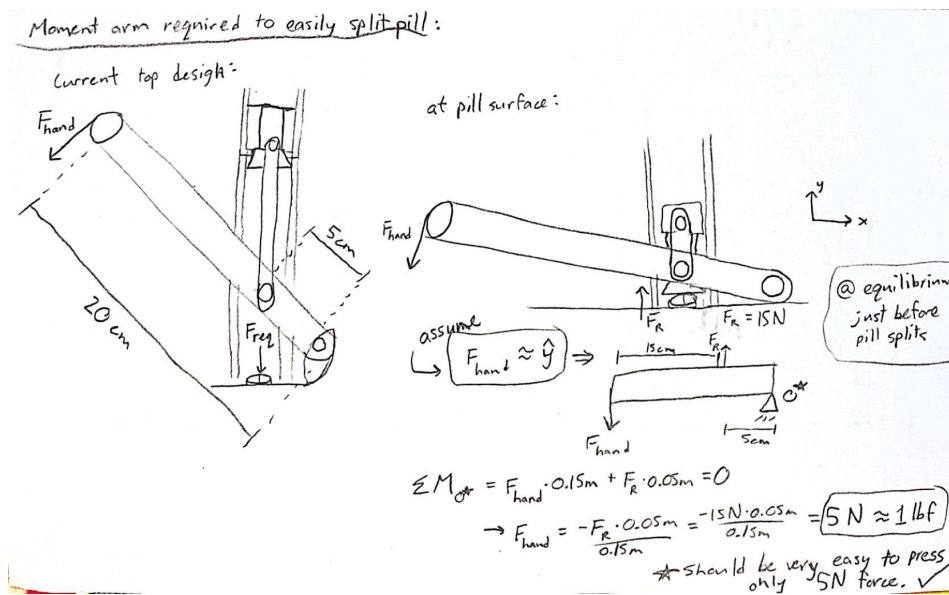 Moment arm required to easily split pill:
Current top design:
F_hand
5cm
20cm
F_req
at pill surface:
F_hand
y
x
F_R
F_R = 15N
@ equilibrium
just before
pill splits
assume
F_hand ≈ ŷ ⇒
15cm
F_R
O*
5cm
F_hand
ΣM_O* = F_hand · 0.15m + F_R · 0.05m = 0
→ F_hand = -F_R · 0.05m / 0.15m = -15N · 0.05m / 0.15m = 5N ≈ 1 lbf
☆ Should be very easy to press
only 5N force. ✓